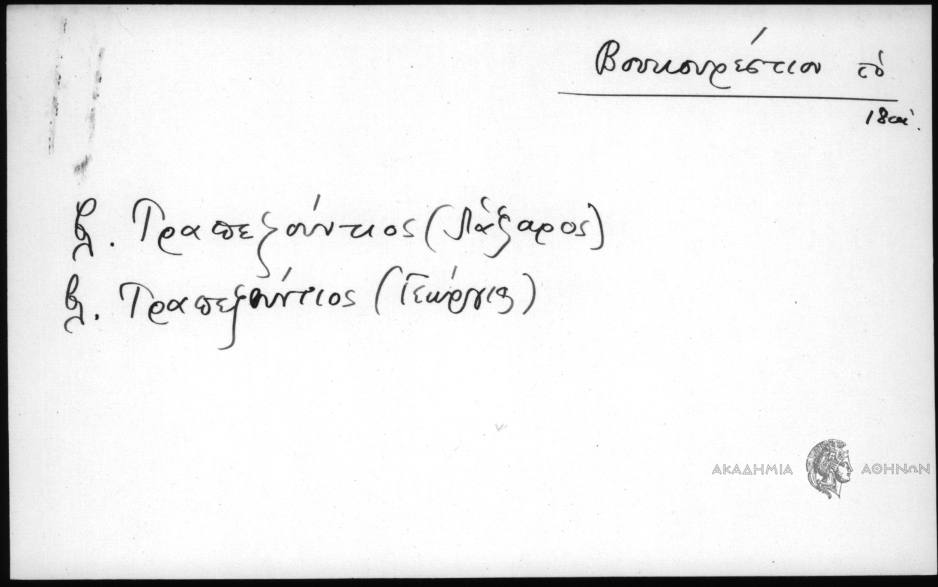 Βουκουρέστιον τὸ
18αἰ.
βλ. Τραπεζούντιος (Λάζαρος)
βλ. Τραπεζούντιος (Γεώργιος)
ΑΚΑΔΗΜΙΑ ΑΘΗΝΩΝ